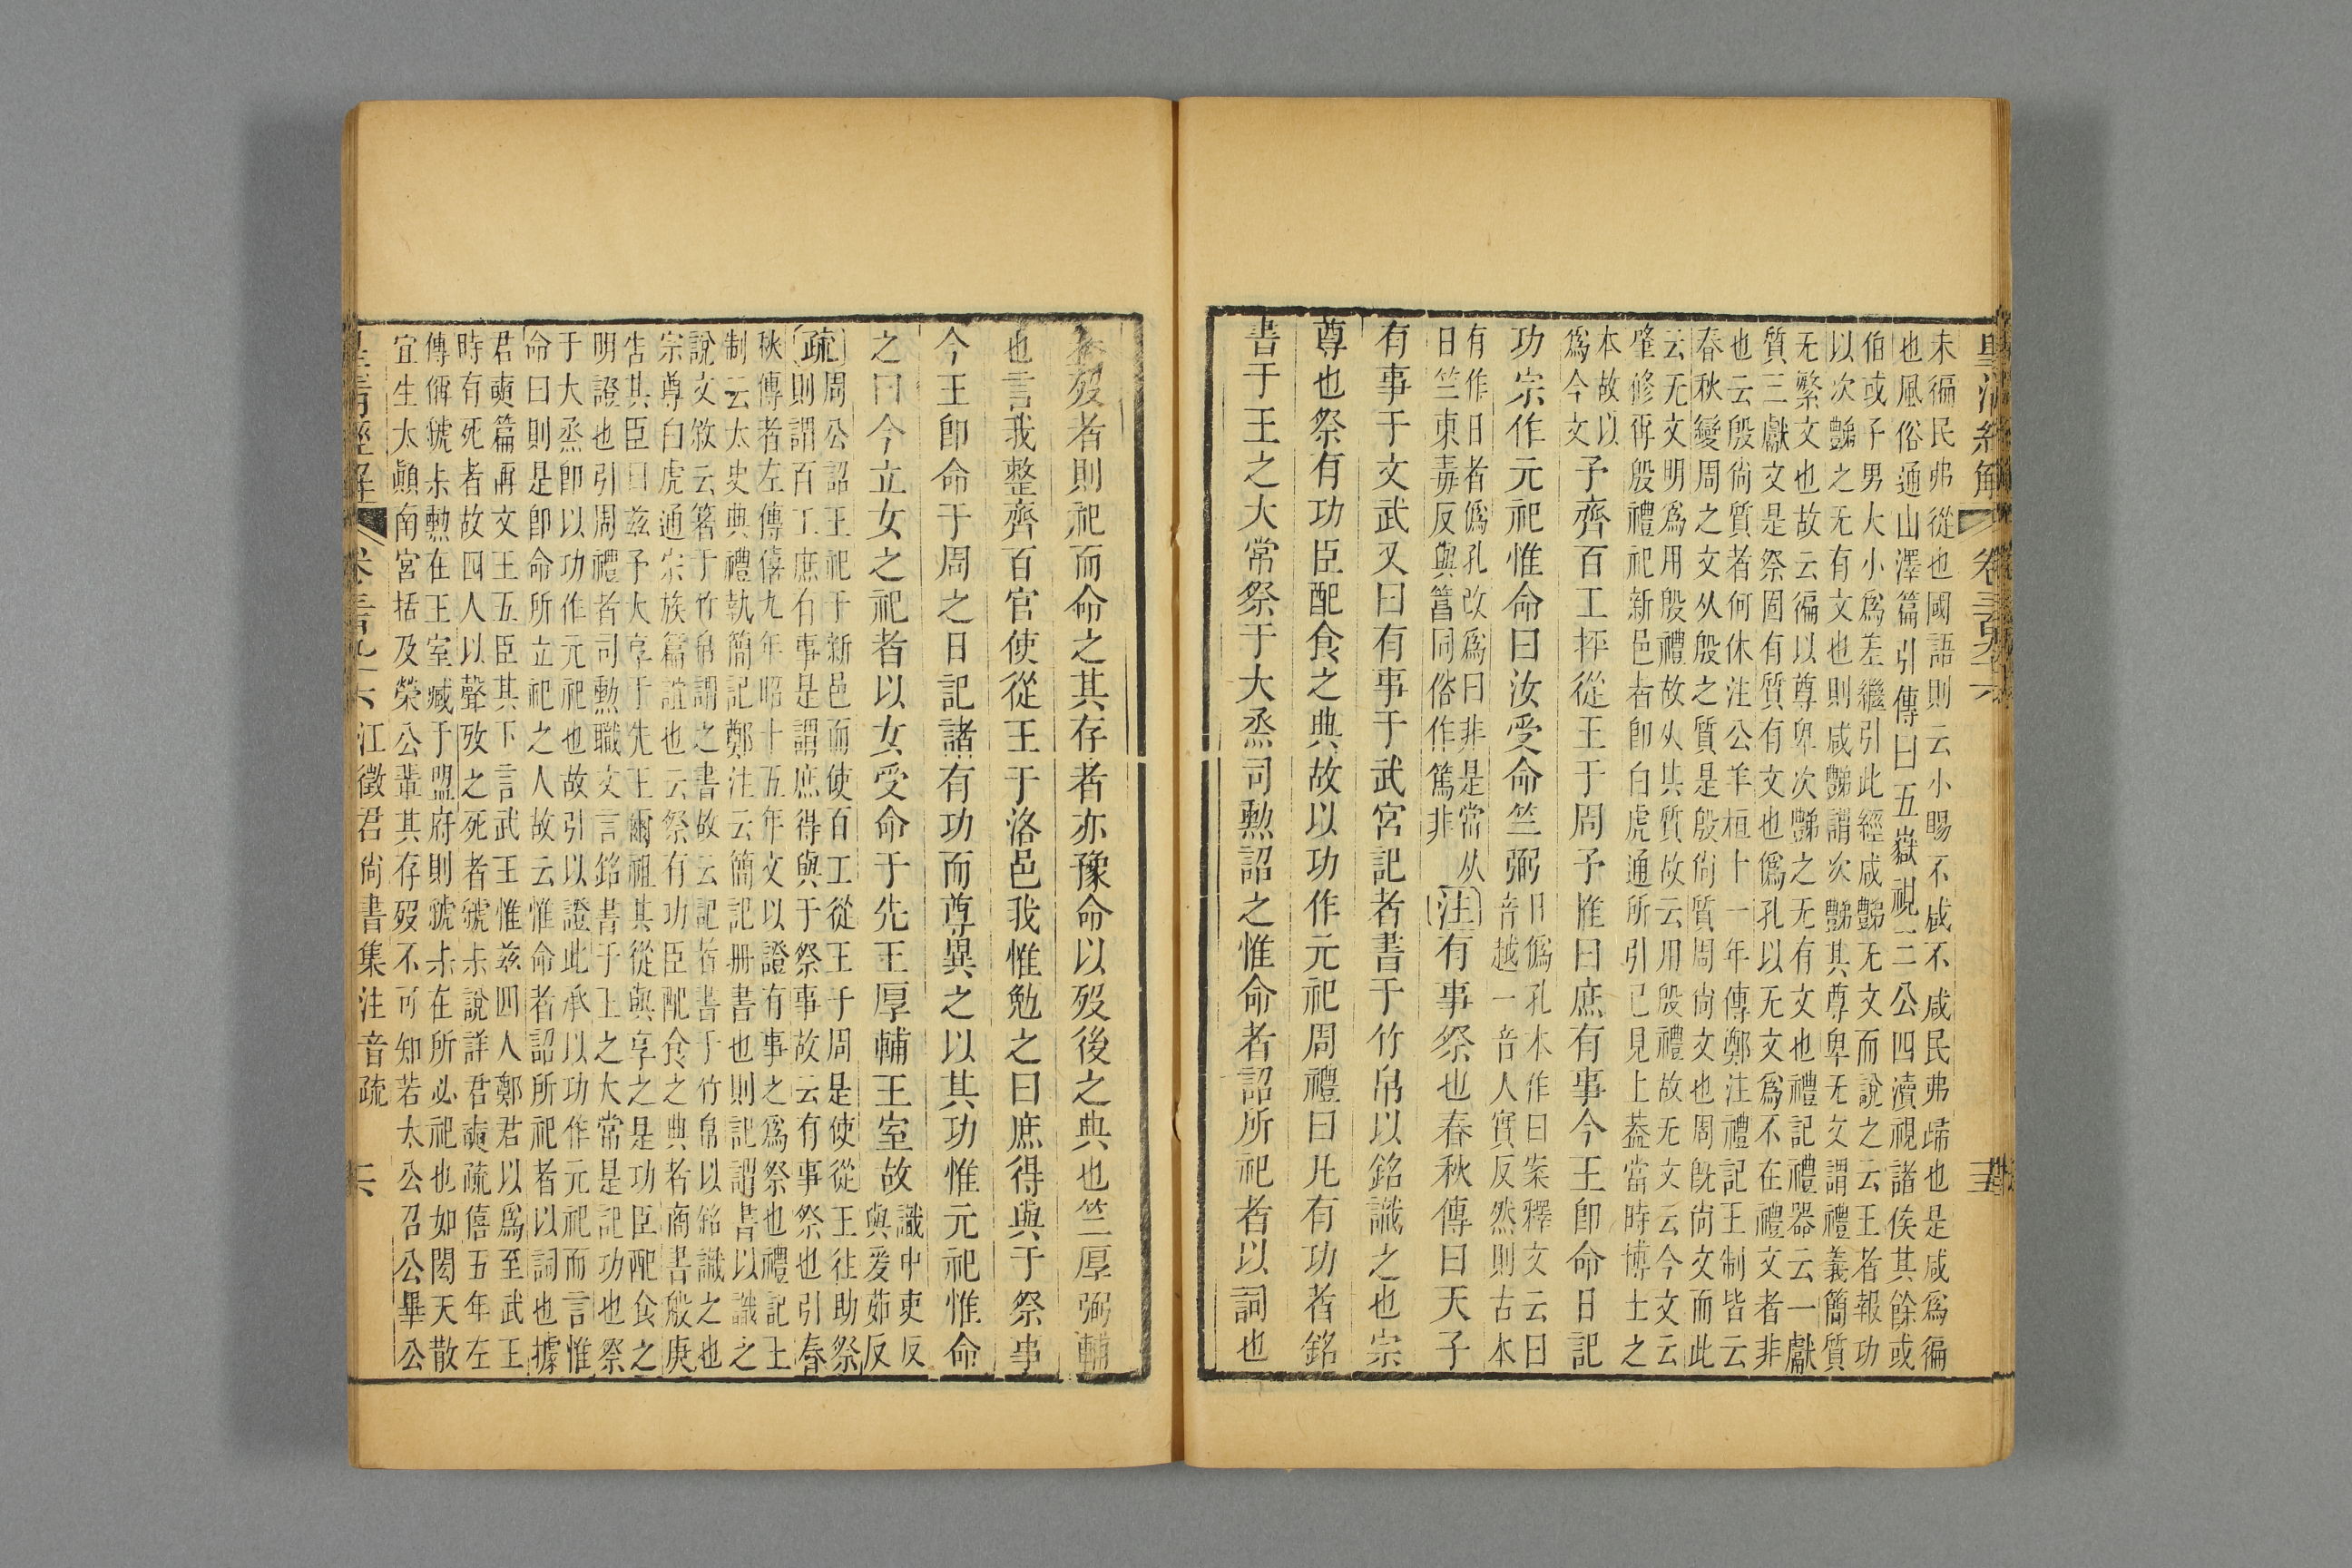 皇淸經解 卷三百九十六 十五
未徧民弗從也國語則云小賜不咸不咸民弗歸也是咸爲徧
也風俗通山澤篇引傳曰五嶽視三公四瀆視諸矦其餘或
伯或子男大小爲差繼引此經咸豑无文而說之云王者報功
以次豑之无有文也則咸豑謂次豑其尊卑无文謂禮義簡質
无繁文也故云徧以尊卑次豑之无有文也禮記禮器云一獻
質三獻文是祭固有質有文也僞孔以无文爲不在禮文者非
也云殷尙質者何休注公羊桓十一年傳鄭注禮記王制皆云
春秋變周之文从殷之質是殷尙質周尙文也周旣尙文而此
云无文明爲用殷禮故从其質故云用殷禮故无文云今文云
肇修再殷禮祀新邑者卽白虎通所引已見上葢當時博士之
本故以
爲今文
予齊百工抨從王于周予惟曰庶有事今王卽命曰記
功宗作元祀惟命曰汝受命竺弼
曰僞孔本作曰案釋文云曰
音越一音人實反然則古本
有作日者僞孔改爲曰非是常从
日竺東毒反與篤同俗作篤非
注有事祭也春秋傳曰天子
有事于文武又曰有事于武宮記者書于竹帛以銘識之也宗
尊也祭有功臣配食之典故以功作元祀周禮曰凡有功者銘
書于王之大常祭于大烝司勲詔之惟命者詔所祀者以詞也
歿者則祀而命之其存者亦豫命以歿後之典也竺厚弼輔
也言我整齊百官使從王于洛邑我惟勉之曰庶得與于祭事
今王卽命于周之日記諸有功而尊異之以其功惟元祀惟命
之曰今立女之祀者以女受命于先王厚輔王室故
識中吏反
與爰茹反
疏周公詔王祀于新邑而使百工從王于周是使從王往助祭
則謂百工庶有事是謂庶得與于祭事故云有事祭也引春
秋傳者左傳僖九年昭十五年文以證有事之爲祭也禮記王
制云太史典禮執簡記鄭注云簡記册書也則記謂書以識之
說文敘云箸于竹帛謂之書故云記者書于竹帛以銘識之也
宗尊白虎通宗族篇誼也云祭有功臣配食之典者商書般庚
告其臣曰兹予大享于先王爾祖其從與享之是功臣配食之
明證也引周禮者司勲職文言銘書于王之大常是記功也祭
于大烝卽以功作元祀也故引以證此承以功作元祀而言惟
命曰則是卽命所立祀之人故云惟命者詔所祀者以詞也據
君奭篇再文王五臣其下言武王惟兹四人鄭君以爲至武王
時有死者故四人以聲攷之死者虢叔說詳君奭疏僖五年左
傳偁虢叔勲在王室臧于盟府則虢叔在所必祀也如閎夭散
宜生太顚南宮括及榮公輩其存歿不可知若太公召公畢公
皇淸經解 卷三百九十六 江徵君尙書集注音疏 十六